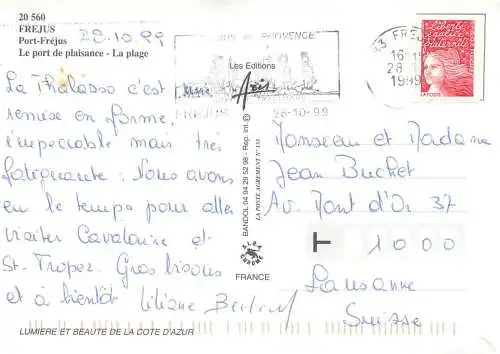 20 560
FREJUS
Port-Fréjus
Le port de plaisance - La plage
29.10.99
La Thalasso c'est
remise en forme,
impeccable mais très
fatiguante. Nous avons
eu le temps pour aller
visiter Cavalaire et
St-Tropez. Gros bisous
et à bientôt Liliane
LUMIERE ET BEAUTE DE LA COTE D'AZUR
PROVENCE
FREJUS 28-10-99
Les Editions
Aris
BANDOL 04 94 29 52 98 - Rep. int. ©
LA POSTE AGREMENT N° 133
FRANCE
83 FREJUS
16
28
1999
liberté
égalité
fraternité
LA POSTE
Monsieur et Madame
Jean Buchet
Av. Mont d'Or 37
1000
Lausanne
Suisse